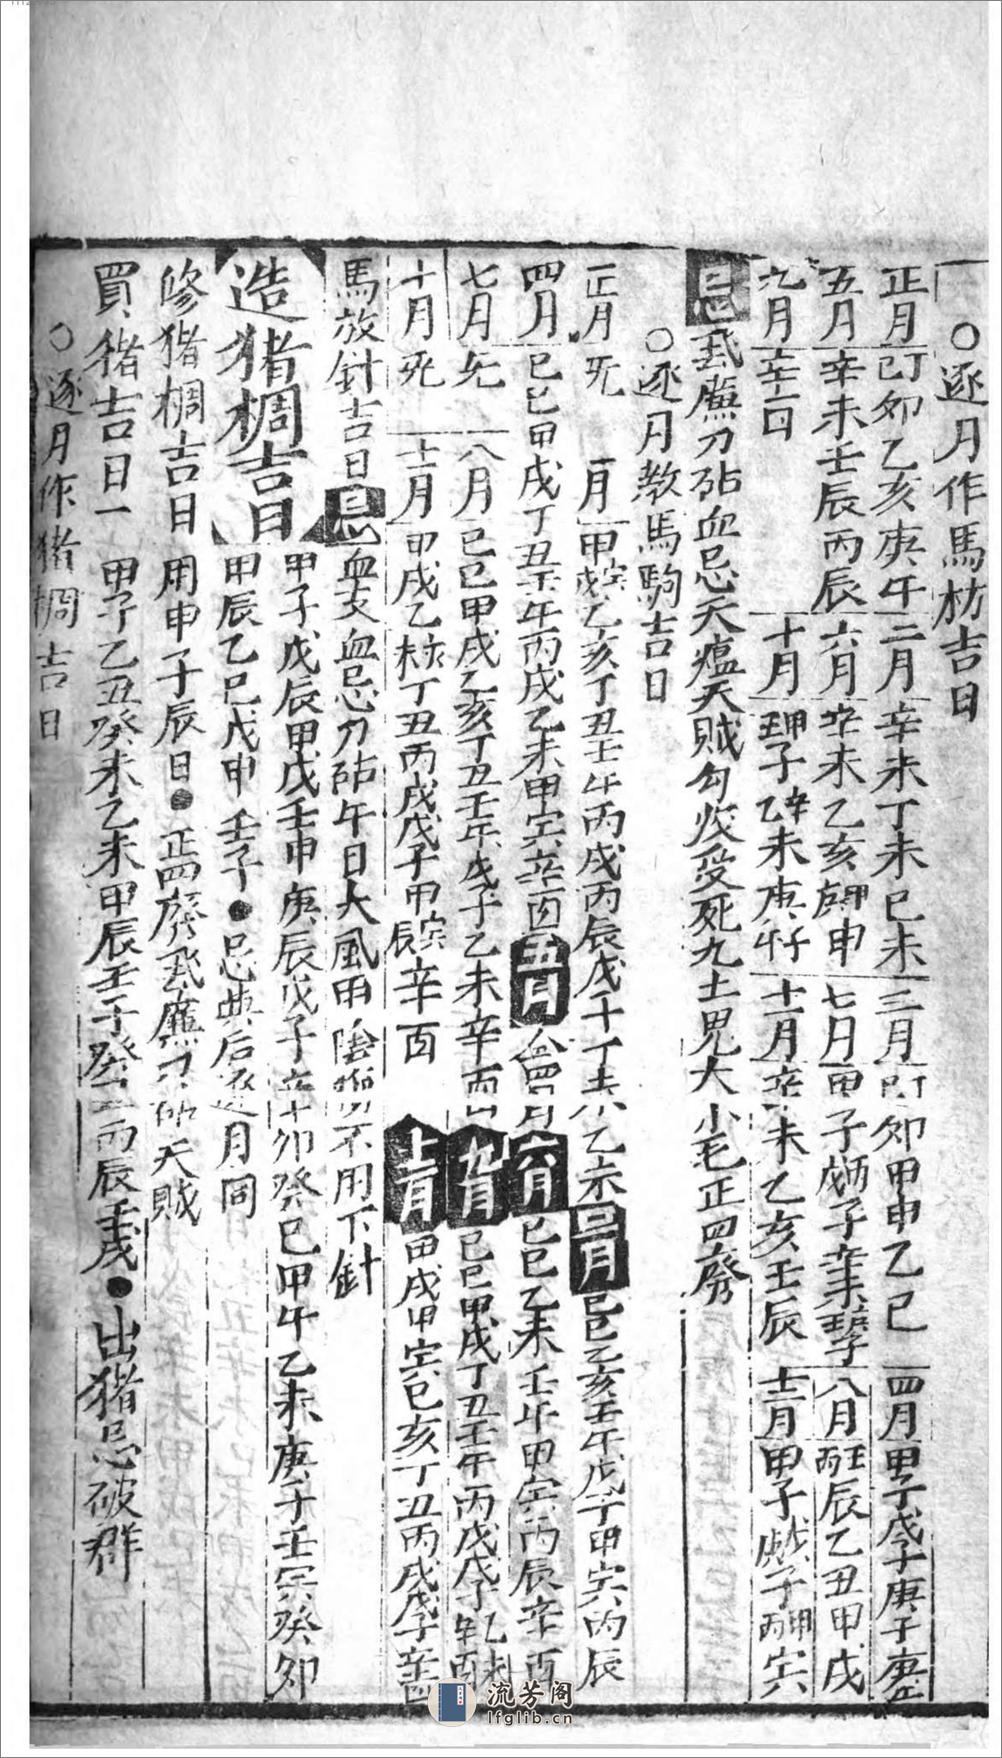 ○逐月作馬枋吉日
正月丁卯己卯乙亥庚午二月辛未丁未己未三月丁卯己卯甲申乙巳四月甲子戊子庚子庚午
五月辛未壬辰丙辰六月辛未乙亥甲申庚申七月甲子戊子丙子辛未八月壬辰乙丑甲戌
九月辛酉十月甲子辛未庚子十一月辛未乙亥壬辰十二月甲子戊子丙寅甲寅
忌飛廉刀砧血忌天瘟天賊勾絞受死九土鬼大小耗正四廢
○逐月教馬駒吉日
正月无二月甲戌乙亥丁丑壬午丙戌丙辰戊午丁未乙未三月己巳乙亥壬午戊子甲寅丙辰
四月己巳甲戌丁丑壬午丙戌乙未甲寅辛酉五月 六月己巳乙未壬午甲寅丙辰辛酉
七月无八月己巳甲戌乙亥丁丑壬午戊子乙未辛酉九月己巳甲戌丁丑壬午丙戌戊子乙未辛酉
十月死十一月甲戌乙未丁丑丙戌戊子甲寅辰辛酉十二月甲戌甲寅己亥丁丑丙戌戊子辛酉
馬放針吉日忌血支血忌刀砧午日大風雨陰 不用下針
造猪椆吉日甲子戊辰甲戌壬申庚辰戊子辛卯癸巳甲午乙未庚子壬寅癸卯
甲辰乙巳戊申壬子●忌與后逐月同
修猪椆吉日用申子辰日●正四廢飛廉刀砧天賊
買猪吉日一甲子乙丑癸未乙未甲辰壬子癸丑丙辰壬戌●出猪忌破群
○逐月作猪椆吉日
流芳阁
lfglib.cn